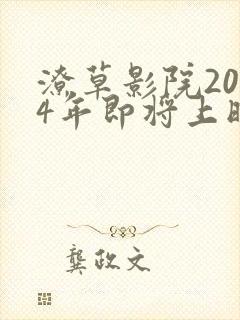 潦草影院20
4年即将上映
龚政文